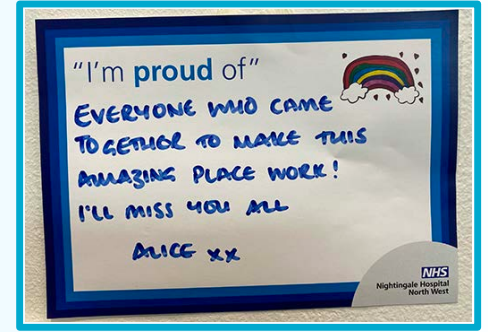 "I'm proud of"
EVERYONE WHO CAME
TOGETHER TO MAKE THIS
AMAZING PLACE WORK!
I'LL MISS YOU ALL
ALICE xx
NHS
Nightingale Hospital
North West